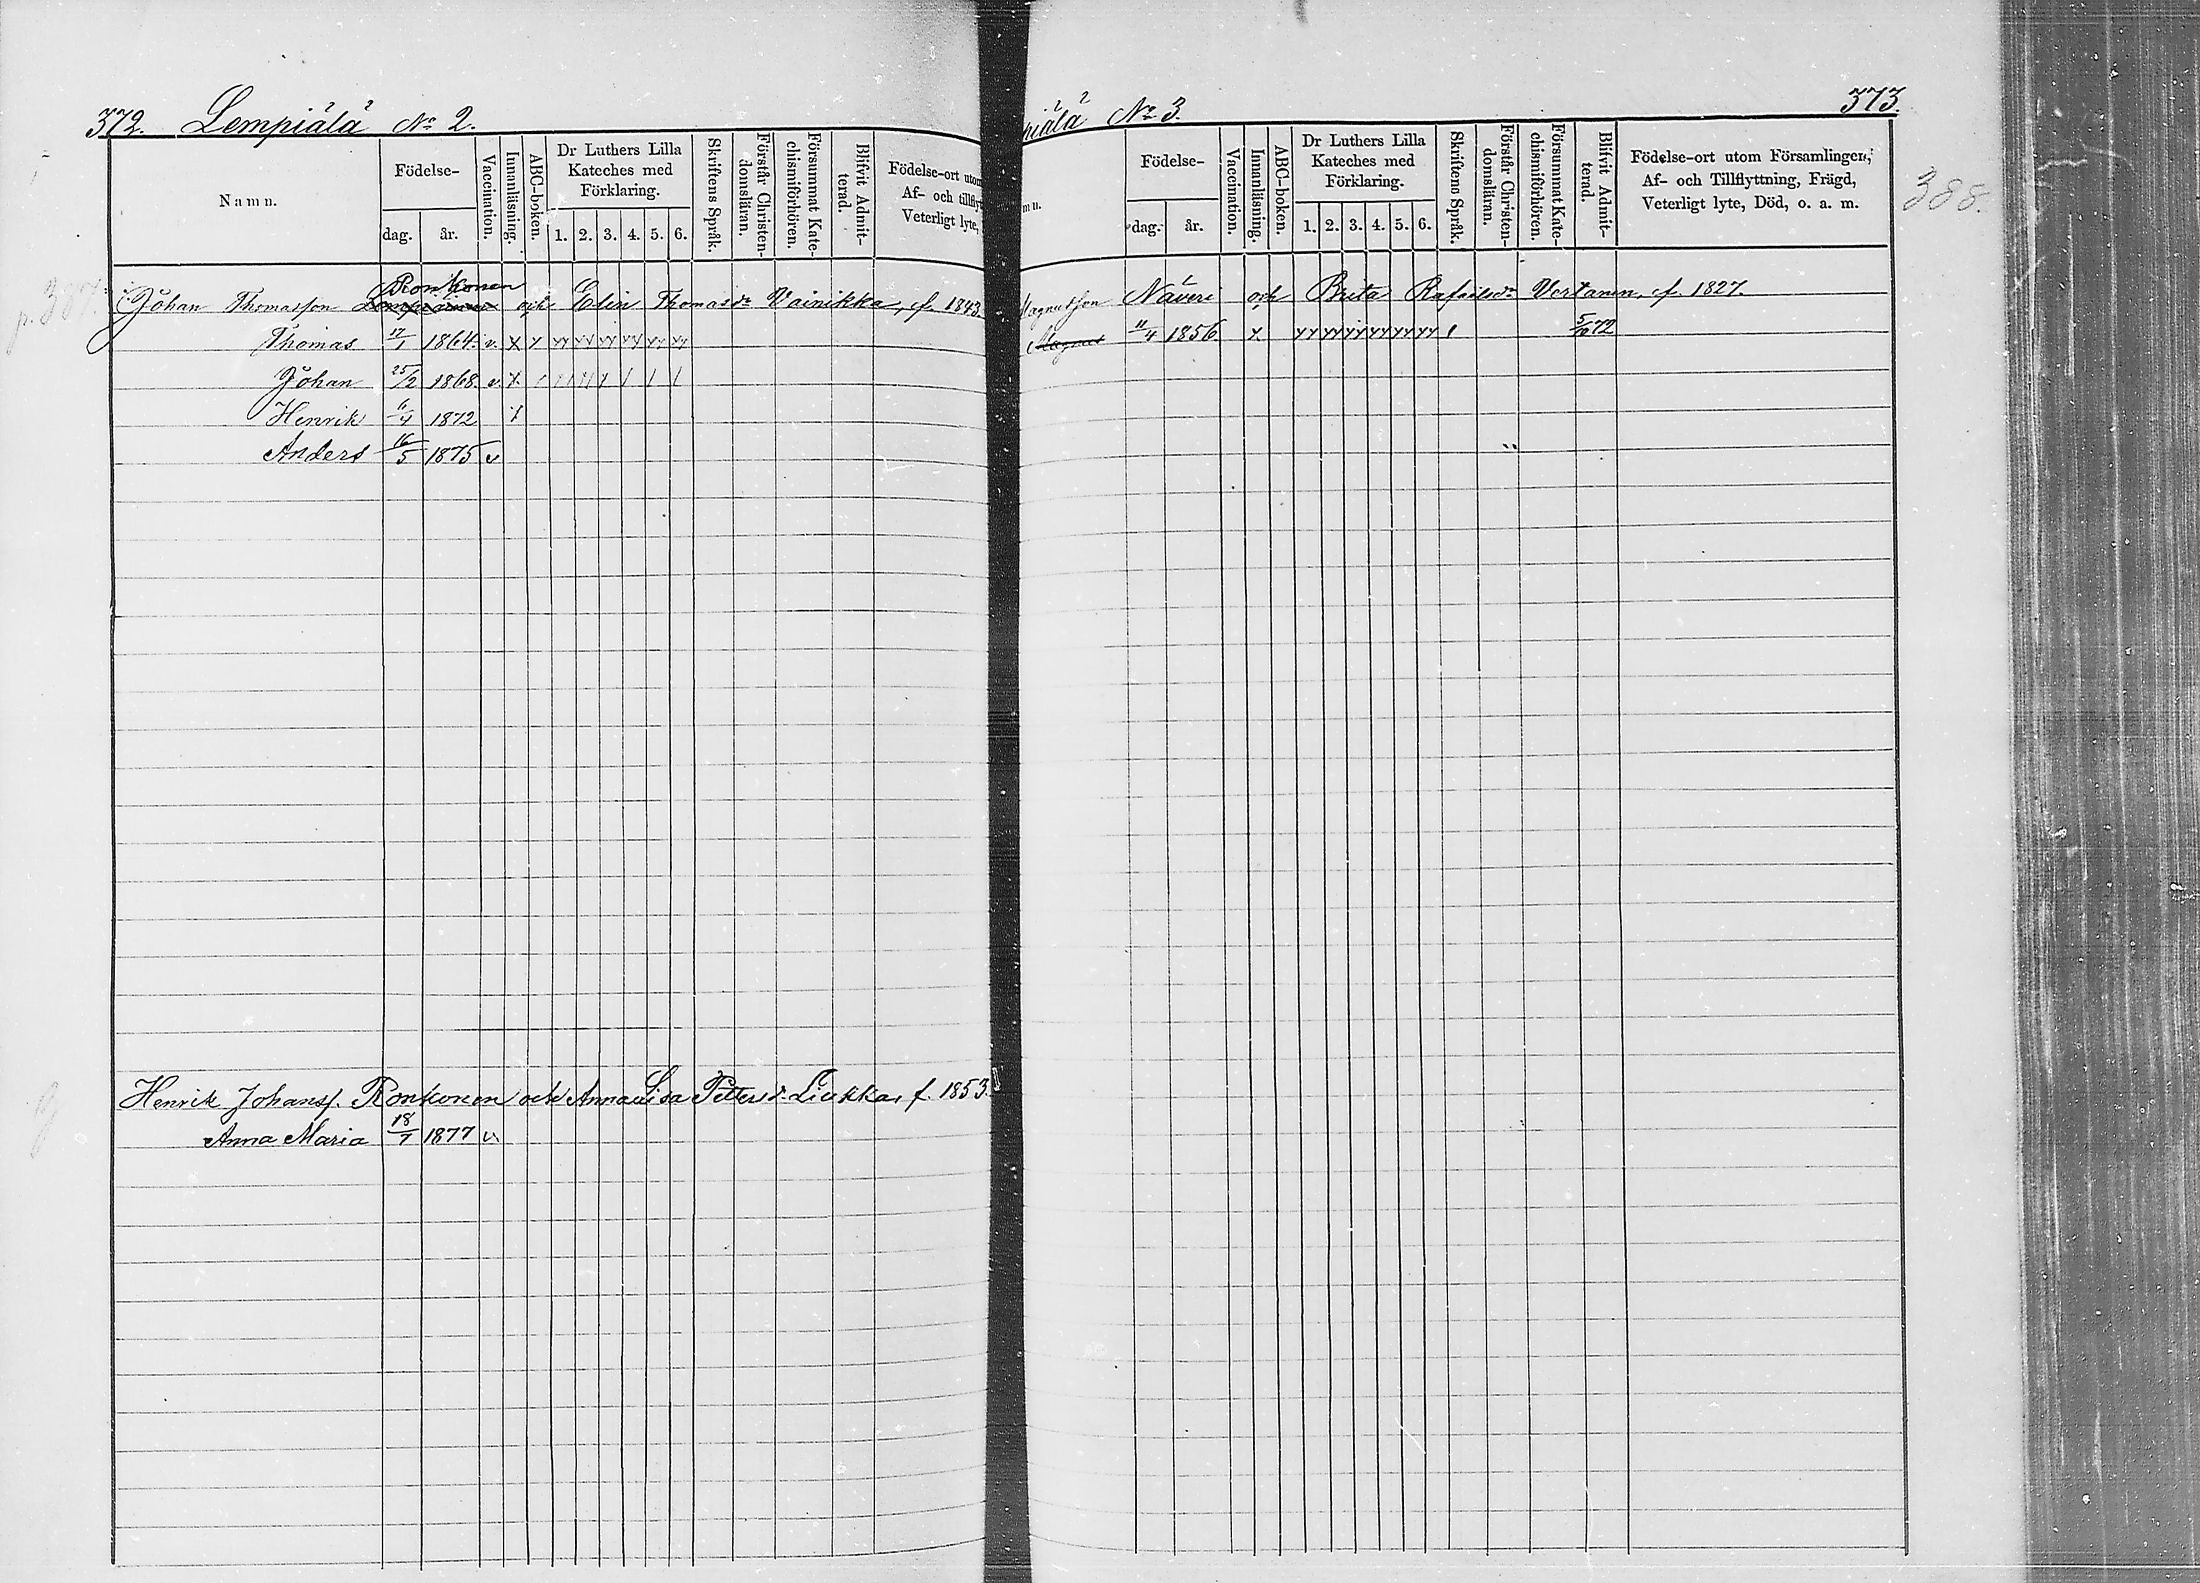 372. Lempiälä No 2.
Namn.
Födelse-
dag.
år.
Vaccination.
Innanläsning.
ABC-boken.
Dr Luthers Lilla
Kateches med
Förklaring.
1. 2. 3. 4. 5. 6.
Skriftens Språk.
Förstår Christen-
domsläran.
Försummat Kate-
chismiförhören.
Blifvit Admit-
terad.
Födelse-ort utom
Af- och tillflyt
Veterligt lyte,
p. 387.
Ronkonen
Johan Thomasson Lempiäinen och Elin Thomasdr Vainikka, f. 1843.
Thomas 17/1 1864 v. x x xx xx xx xx xx xx
Johan 25/2 1868 v. x / // // x / / /
Henrik 11/4 1872 x
Anders 16/5 1875 v
Henrik Johanss. Ronkonen och Anna Lisa Pettersd. Liukka, f. 1853.
Anna Maria 18/7 1877 v.
piälä No 3. 373.
mn.
Födelse-
dag.
år.
Vaccination.
Innanläsning.
ABC-boken.
Dr Luthers Lilla
Kateches med
Förklaring.
1. 2. 3. 4. 5. 6.
Skriftens Språk.
Förstår Christen-
domsläran.
Försummat Kate-
chismiförhören.
Blifvit Admit-
terad.
Födelse-ort utom Församlingen,
Af- och Tillflyttning, Frägd,
Veterligt lyte, Död, o. a. m.
388.
Magnusson Näveri och Brita Rafaelsdr Vertanen, f. 1827.
Magnus 11/4 1856 x. xx xx xx xx xx xx / 5/10 72